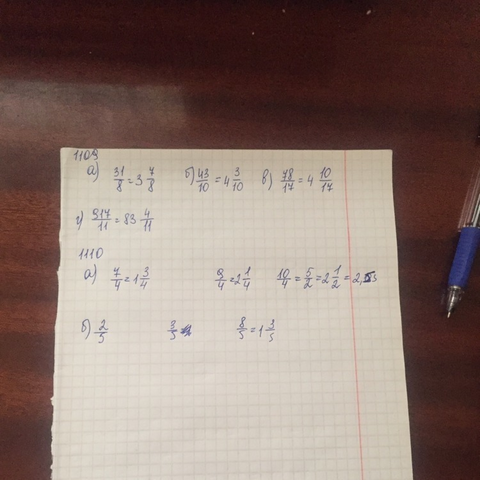 1109
а) 31/8 = 3 7/8 б) 43/10 = 4 3/10 в) 78/17 = 4 10/17
г) 917/11 = 83 4/11
1110
а) 7/4 = 1 3/4 9/4 = 2 1/4 10/4 = 5/2 = 2 1/2 = 2,5
б) 2/5 3/5 8/5 = 1 3/5